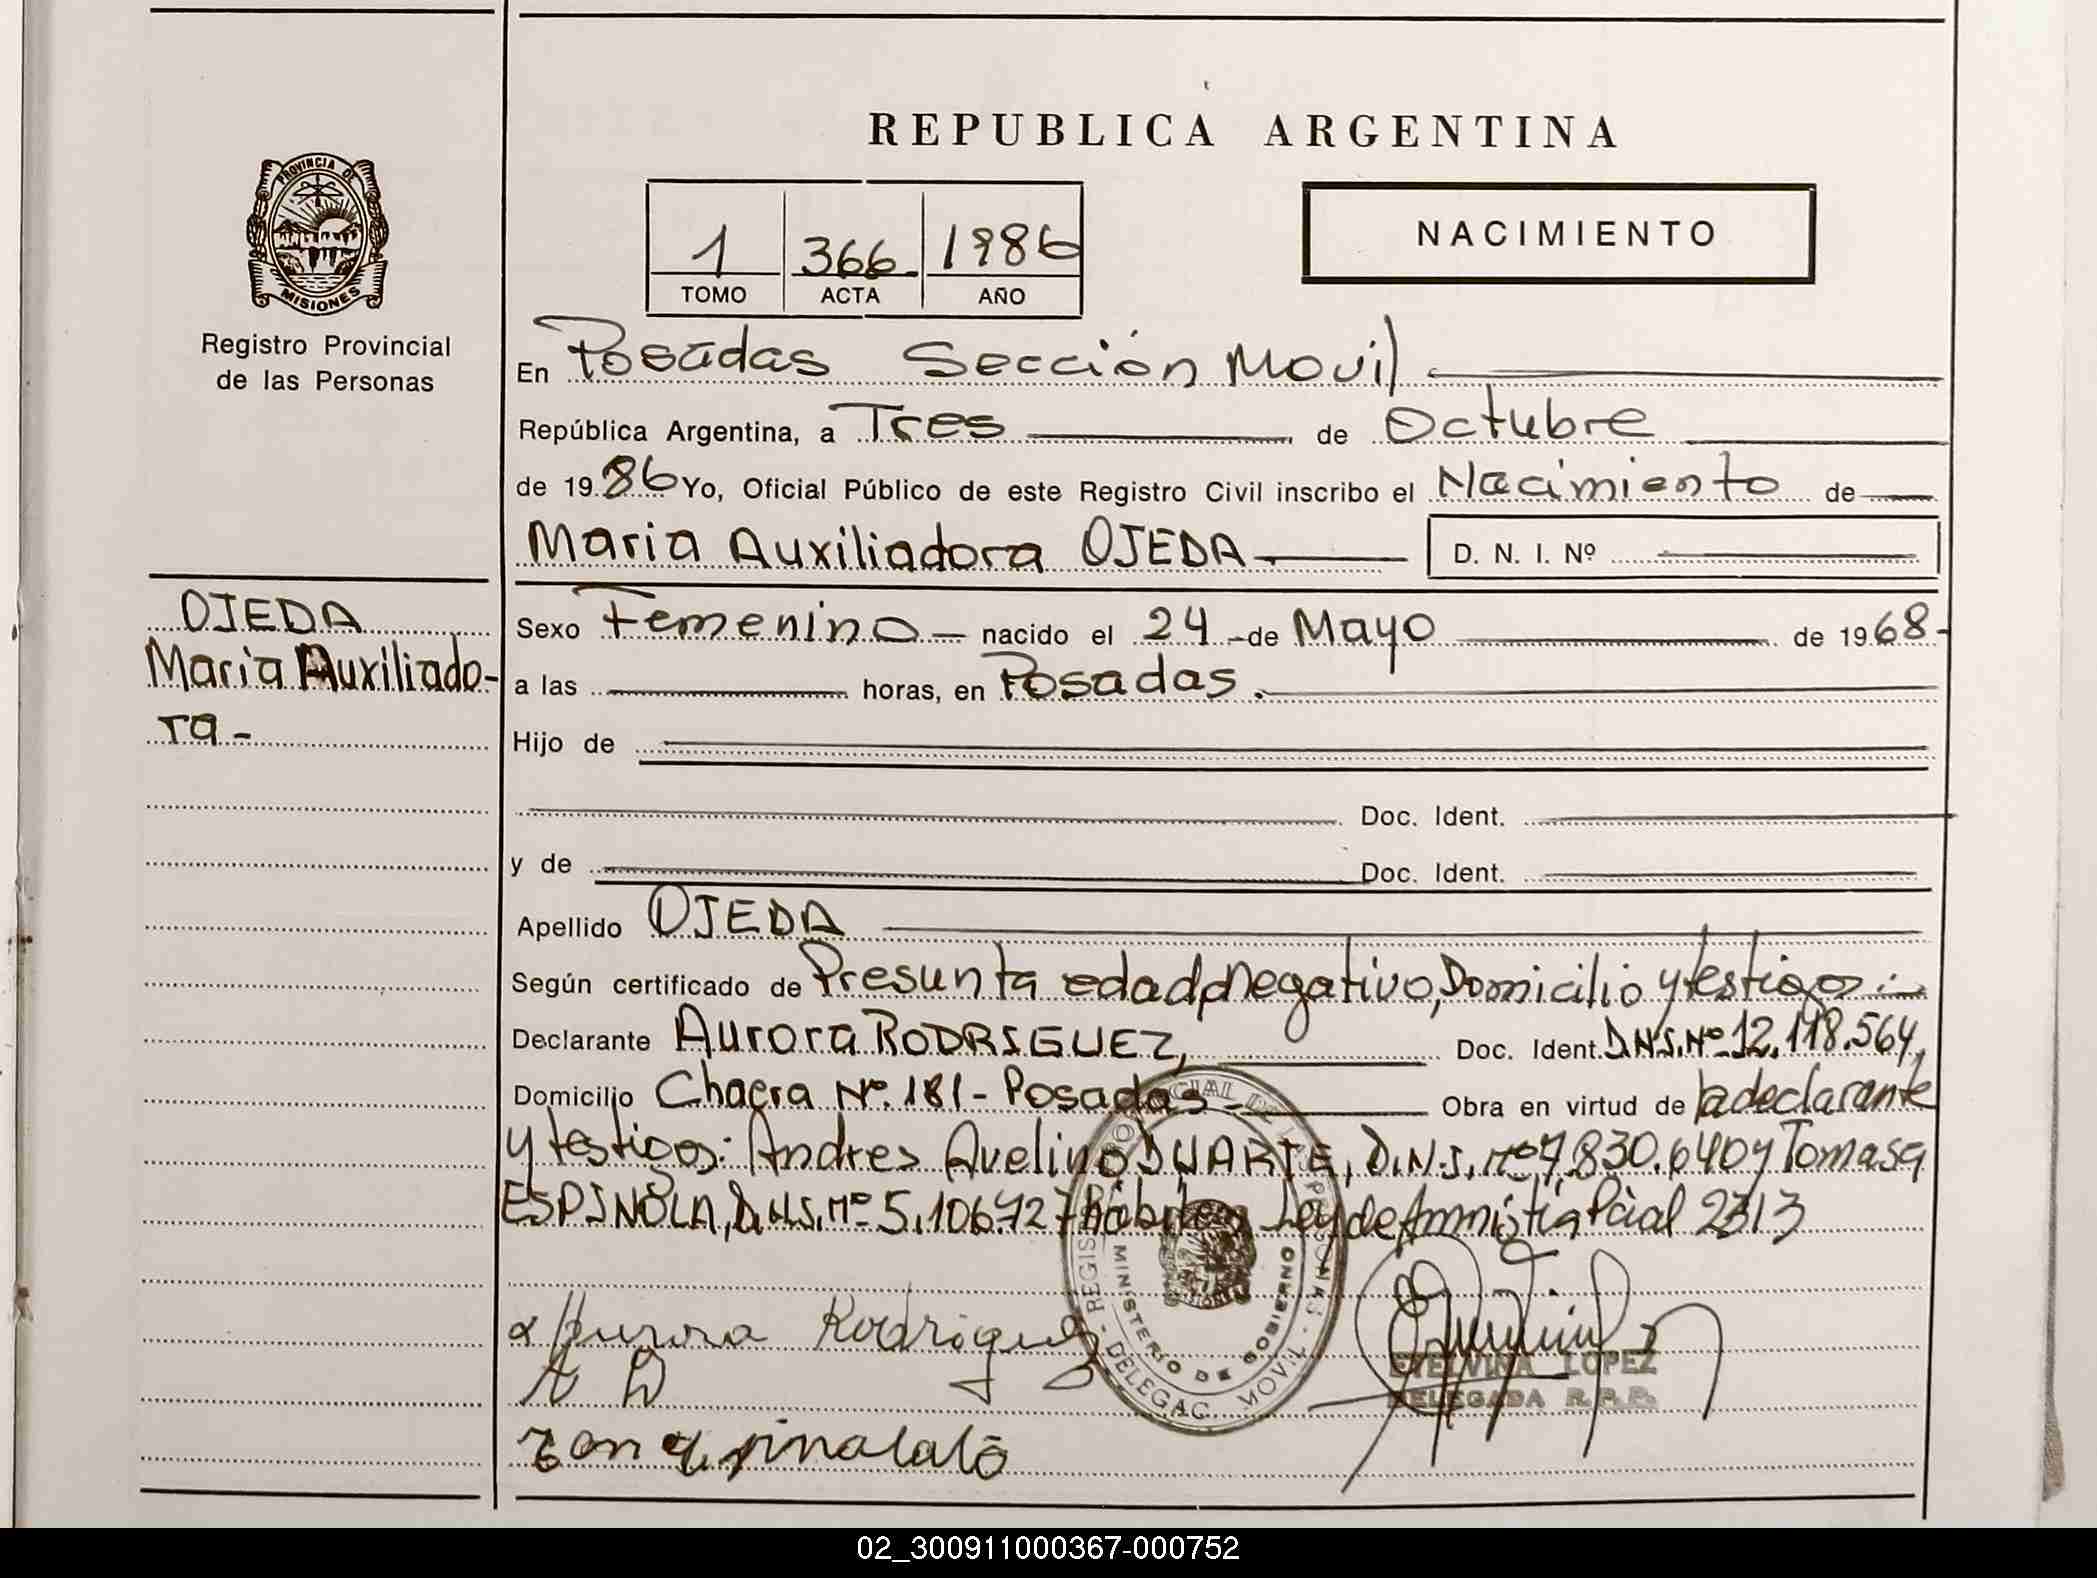 REPUBLICA ARGENTINA
PROVINCIA DE
MISIONES
Registro Provincial
de las Personas
1 366 1986
TOMO ACTA AÑO
NACIMIENTO
En Posadas Sección Movil
República Argentina, a Tres de Octubre
de 1986 Yo, Oficial Público de este Registro Civil inscribo el Nacimiento de
Maria Auxiliadora OJEDA D. N. I. Nº
OJEDA
Maria Auxiliado-
ra -
Sexo Femenino - nacido el 24 - de Mayo de 1968 -
a las horas, en Posadas.
Hijo de
Doc. Ident.
y de Doc. Ident.
Apellido OJEDA
Según certificado de Presunta edad, negativo, Domicilio y testigos :-
Declarante Aurora RODRIGUEZ, Doc. Ident. D.N.I. Nº 12.118.564,
Domicilio Chacra Nº. 181 - Posadas - Obra en virtud de la declarante
y testigos: Andres Avelino DUARTE, D.N.I. Nº 7.830.640 y Tomasa
ESPINOLA, D.N.I. Nº 5.106.727 Hábiles Ley de Amnistía Pcial 2313
Aurora Rodriguez
A D
REGISTRO PROVINCIAL DE LAS PERSONAS - DELEGAC. MOVIL -
MINISTERIO DE GOBIERNO
ETELVINA LOPEZ
DELEGADA R.P.P.
02_300911000367-000752